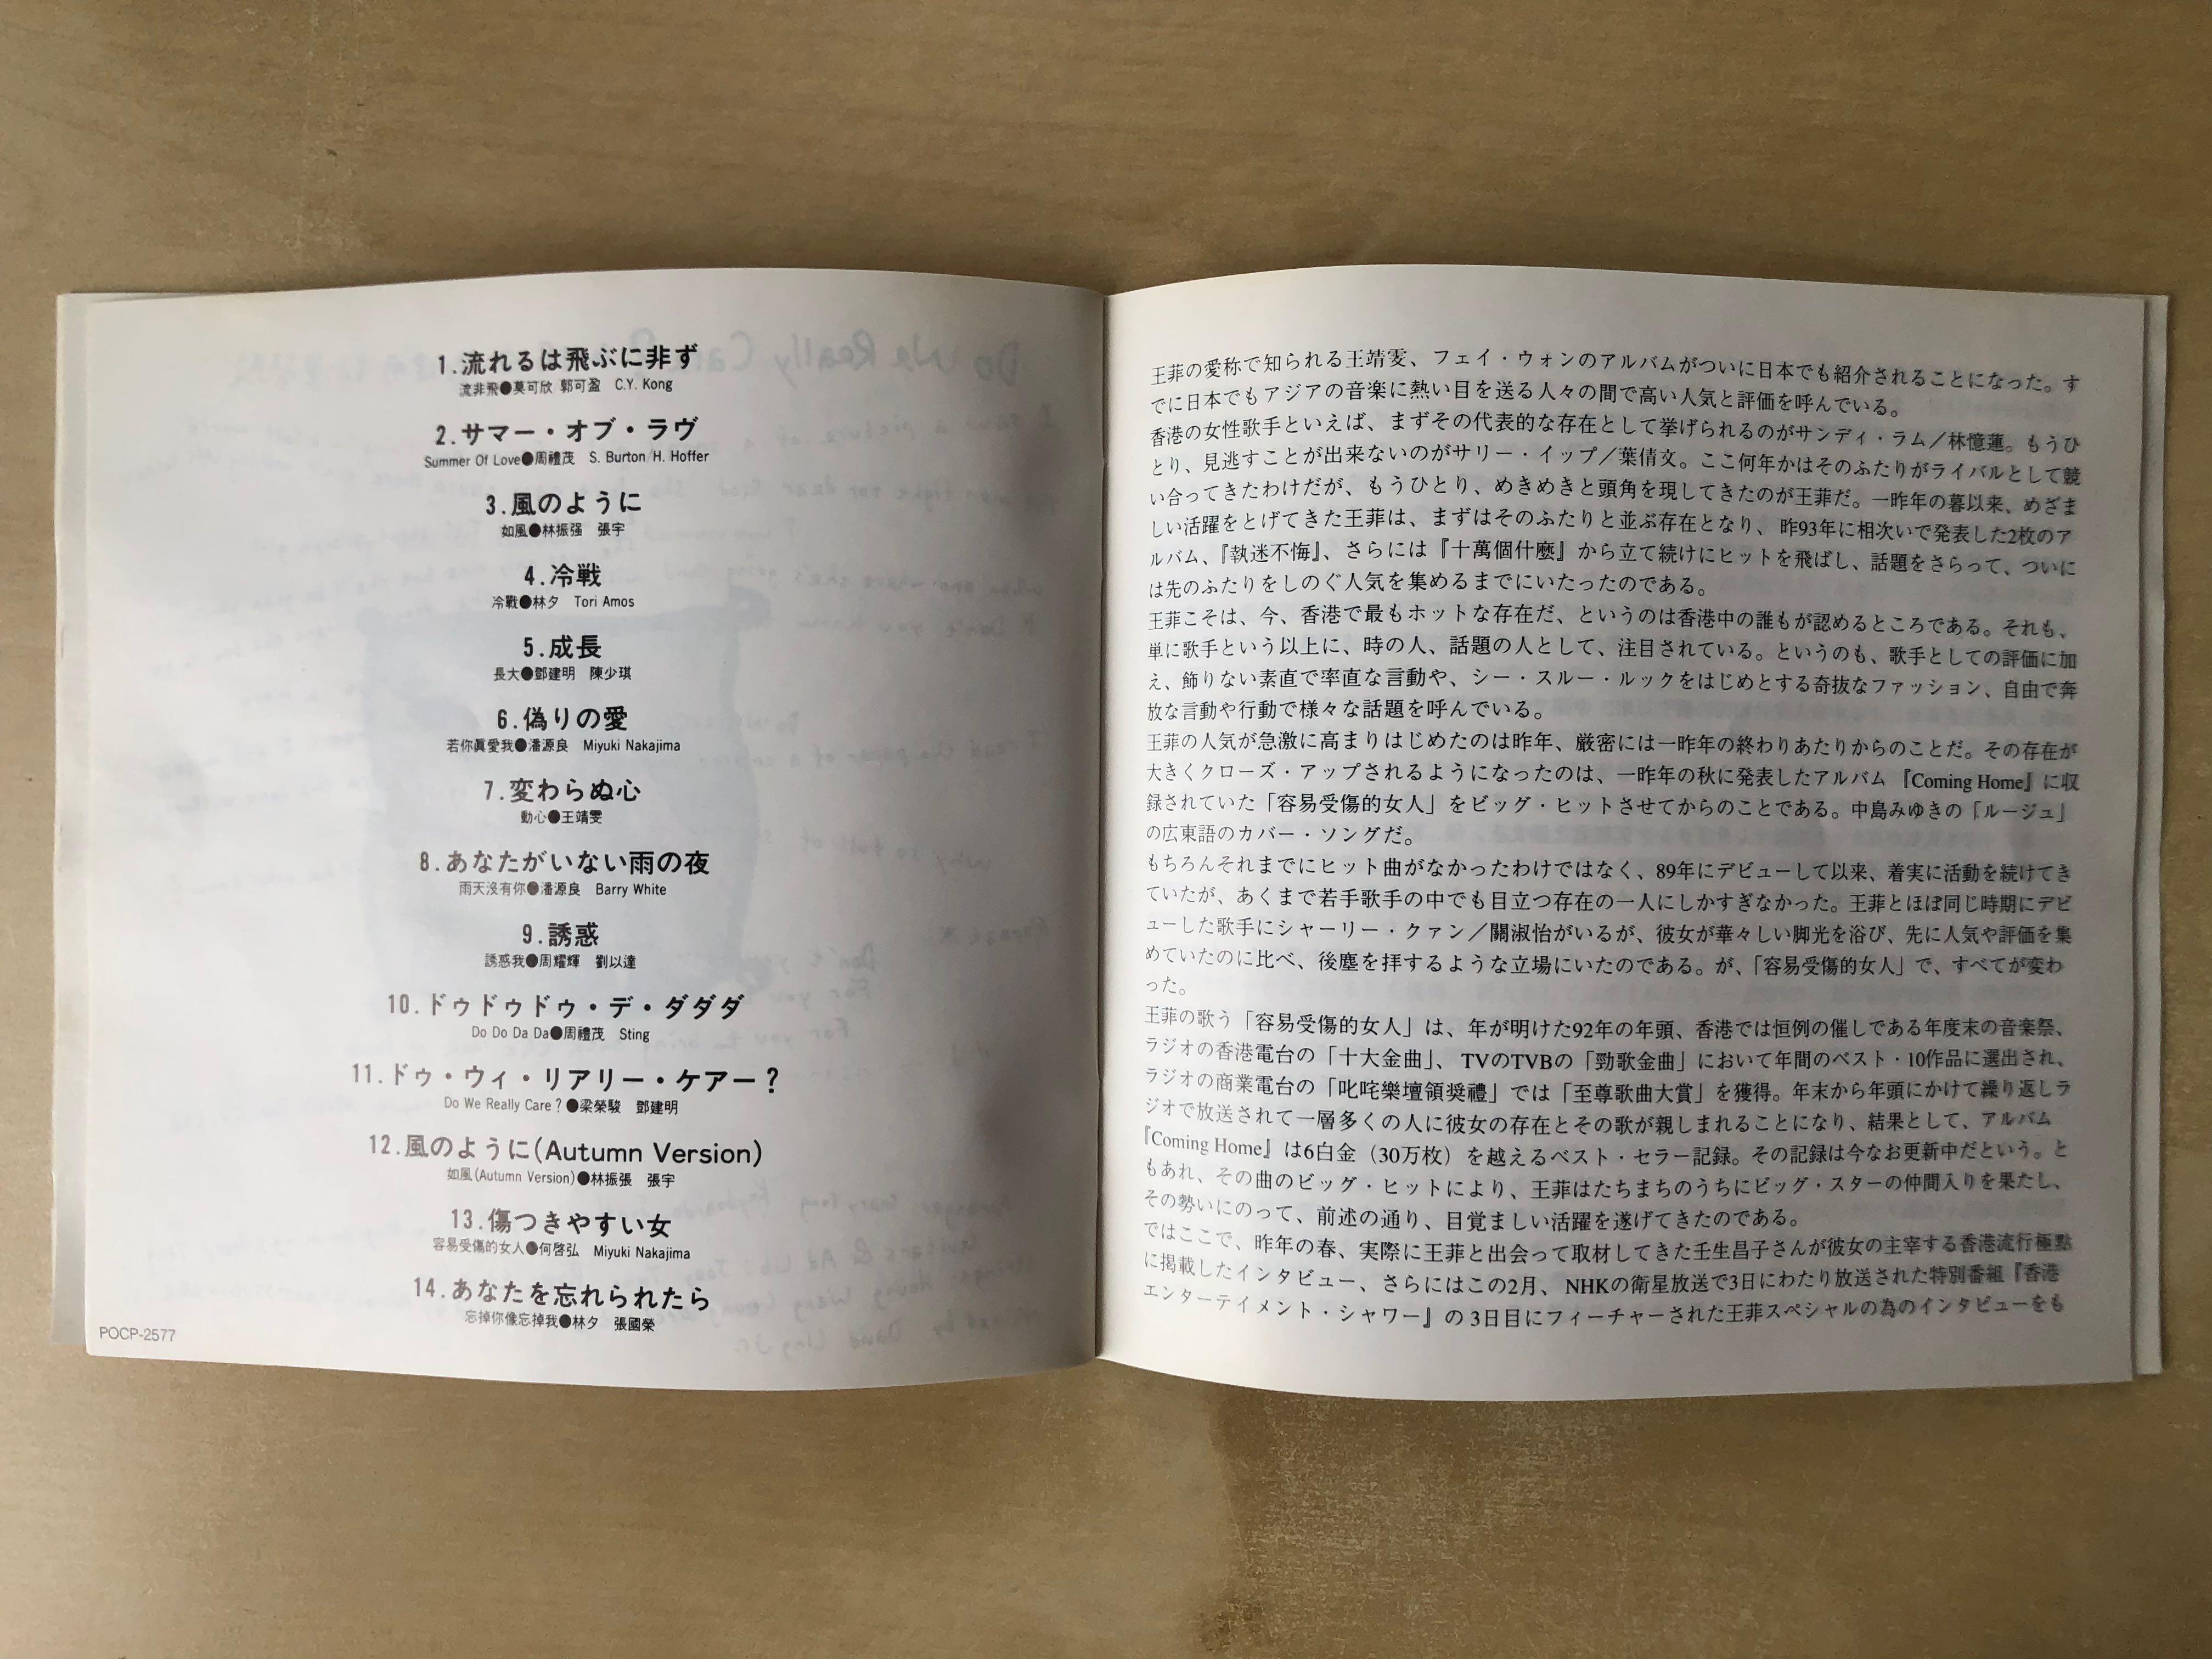 1.流れるは飛ぶに非ず
流非飛●莫可欣 郭可盈 C.Y. Kong
2.サマー・オブ・ラヴ
Summer Of Love●周禮茂 S. Burton/H. Hoffer
3.風のように
如風●林振强 張宇
4.冷戦
冷戰●林夕 Tori Amos
5.成長
長大●鄧建明 陳少琪
6.偽りの愛
若你眞愛我●潘源良 Miyuki Nakajima
7.変わらぬ心
動心●王靖雯
8.あなたがいない雨の夜
雨天沒有你●潘源良 Barry White
9.誘惑
誘惑我●周耀輝 劉以達
10.ドゥドゥドゥ・デ・ダダダ
Do Do Da Da●周禮茂 Sting
11.ドゥ・ウィ・リアリー・ケアー？
Do We Really Care？●梁榮駿 鄧建明
12.風のように(Autumn Version)
如風(Autumn Version)●林振張 張宇
13.傷つきやすい女
容易受傷的女人●何啓弘 Miyuki Nakajima
14.あなたを忘れられたら
忘掉你像忘掉我●林夕 張國榮
POCP-2577
王菲の愛称で知られる王靖雯、フェイ・ウォンのアルバムがついに日本でも紹介されることになった。す
でに日本でもアジアの音楽に熱い目を送る人々の間で高い人気と評価を呼んでいる。
香港の女性歌手といえば、まずその代表的な存在として挙げられるのがサンディ・ラム／林憶蓮。もうひ
とり、見逃すことが出来ないのがサリー・イップ／葉倩文。ここ何年かはそのふたりがライバルとして競
い合ってきたわけだが、もうひとり、めきめきと頭角を現してきたのが王菲だ。一昨年の暮以来、めざま
しい活躍をとげてきた王菲は、まずはそのふたりと並ぶ存在となり、昨93年に相次いで発表した2枚のア
ルバム、『執迷不悔』、さらには『十萬個什麼』から立て続けにヒットを飛ばし、話題をさらって、ついに
は先のふたりをしのぐ人気を集めるまでにいたったのである。
王菲こそは、今、香港で最もホットな存在だ、というのは香港中の誰もが認めるところである。それも、
単に歌手という以上に、時の人、話題の人として、注目されている。というのも、歌手としての評価に加
え、飾りない素直で率直な言動や、シー・スルー・ルックをはじめとする奇抜なファッション、自由で奔
放な言動や行動で様々な話題を呼んでいる。
王菲の人気が急激に高まりはじめたのは昨年、厳密には一昨年の終わりあたりからのことだ。その存在が
大きくクローズ・アップされるようになったのは、一昨年の秋に発表したアルバム『Coming Home』に収
録されていた「容易受傷的女人」をビッグ・ヒットさせてからのことである。中島みゆきの「ルージュ」
の広東語のカバー・ソングだ。
もちろんそれまでにヒット曲がなかったわけではなく、89年にデビューして以来、着実に活動を続けてき
ていたが、あくまで若手歌手の中でも目立つ存在の一人にしかすぎなかった。王菲とほぼ同じ時期にデビ
ューした歌手にシャーリー・クァン／關淑怡がいるが、彼女が華々しい脚光を浴び、先に人気や評価を集
めていたのに比べ、後塵を拝するような立場にいたのである。が、「容易受傷的女人」で、すべてが変わ
った。
王菲の歌う「容易受傷的女人」は、年が明けた92年の年頭、香港では恒例の催しである年度末の音楽祭、
ラジオの香港電台の「十大金曲」、TVのTVBの「勁歌金曲」において年間のベスト・10作品に選出され、
ラジオの商業電台の「叱咤樂壇領奨禮」では「至尊歌曲大賞」を獲得。年末から年頭にかけて繰り返しラ
ジオで放送されて一層多くの人に彼女の存在とその歌が親しまれることになり、結果として、アルバム
『Coming Home』は6白金（30万枚）を越えるベスト・セラー記録。その記録は今なお更新中だという。と
もあれ、その曲のビッグ・ヒットにより、王菲はたちまちのうちにビッグ・スターの仲間入りを果たし、
その勢いにのって、前述の通り、目覚ましい活躍を遂げてきたのである。
ではここで、昨年の春、実際に王菲と出会って取材してきた壬生昌子さんが彼女の主宰する香港流行極點
に掲載したインタビュー、さらにはこの2月、NHKの衛星放送で3日にわたり放送された特別番組『香港
エンターテイメント・シャワー』の3日目にフィーチャーされた王菲スペシャルの為のインタビューをも